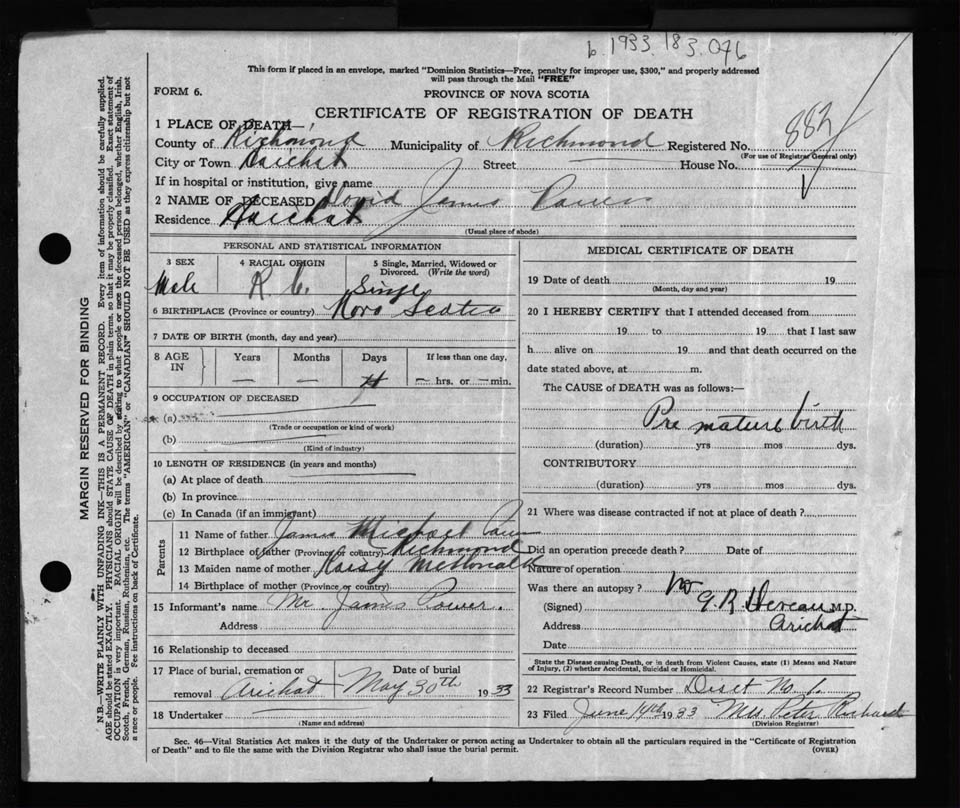 b. 1933. 183. 076
This form if placed in an envelope, marked "Dominion Statistics—Free, penalty for improper use, $300," and properly addressed
will pass through the Mail "FREE"
FORM 6.
PROVINCE OF NOVA SCOTIA
CERTIFICATE OF REGISTRATION OF DEATH
1 PLACE OF DEATH—
County of Richmond Municipality of Richmond Registered No. 882
(For use of Registrar General only)
City or Town Arichat Street House No.
If in hospital or institution, give name
2 NAME OF DECEASED David James Power
Residence Arichat
(Usual place of abode)
PERSONAL AND STATISTICAL INFORMATION
3 SEX Male
4 RACIAL ORIGIN R. C.
5 Single, Married, Widowed or Divorced. (Write the word) Single
6 BIRTHPLACE (Province or country) Nova Scotia
7 DATE OF BIRTH (month, day and year)
8 AGE IN Years — Months — Days If less than one day, — hrs. or — min.
9 OCCUPATION OF DECEASED
(a)
(Trade or occupation or kind of work)
(b)
(Kind of industry)
10 LENGTH OF RESIDENCE (in years and months)
(a) At place of death
(b) In province
(c) In Canada (if an immigrant)
Parents
11 Name of father James Michael Power
12 Birthplace of father (Province or country) Richmond
13 Maiden name of mother McDonald
14 Birthplace of mother (Province or country)
15 Informant's name Mr. James Power.
Address
16 Relationship to deceased
17 Place of burial, cremation or removal Arichat Date of burial May 30th 1933
18 Undertaker
(Name and address)
MEDICAL CERTIFICATE OF DEATH
19 Date of death 19
(Month, day and year)
20 I HEREBY CERTIFY that I attended deceased from
19 to 19 that I last saw
h alive on 19 and that death occurred on the
date stated above, at m.
The CAUSE of DEATH was as follows:—
Pre mature birth
(duration) yrs mos dys.
CONTRIBUTORY
(duration) yrs mos dys.
21 Where was disease contracted if not at place of death?
Did an operation precede death? Date of
Nature of operation
Was there an autopsy? No
(Signed) G R Deveau M.D.
Address Arichat
Date
State the Disease causing Death, or in death from Violent Causes, state (1) Means and Nature
of Injury, (2) whether Accidental, Suicidal or Homicidal.
22 Registrar's Record Number Disct No 1.
23 Filed June 14th 1933 Mrs. Peter Richard
(Division Registrar)
Sec. 46—Vital Statistics Act makes it the duty of the Undertaker or person acting as Undertaker to obtain all the particulars required in the "Certificate of Registration
of Death" and to file the same with the Division Registrar who shall issue the burial permit.
(OVER)
MARGIN RESERVED FOR BINDING
N.B.—WRITE PLAINLY WITH UNFADING INK—THIS IS A PERMANENT RECORD. Every item of information should be carefully supplied.
AGE should be stated EXACTLY. PHYSICIANS should STATE CAUSE OF DEATH in plain terms, so that it may be properly classified. Exact statement of
OCCUPATION is very important. RACIAL ORIGIN will be described by stating to what people or race the deceased person belonged, whether English, Irish,
Scotch, French, German, Russian, Ruthenian, etc. The terms "AMERICAN" or "CANADIAN" SHOULD NOT BE USED as they express citizenship but not
a race or people. Fee instructions on back of Certificate.